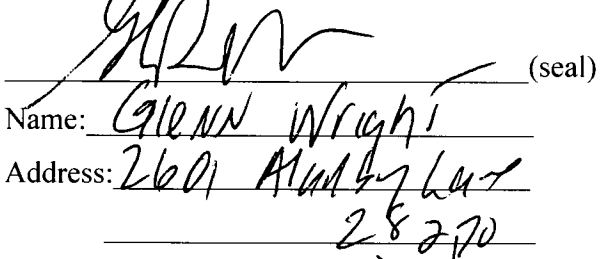 (seal)
Name: Glenn Wright
Address: 2601
28270